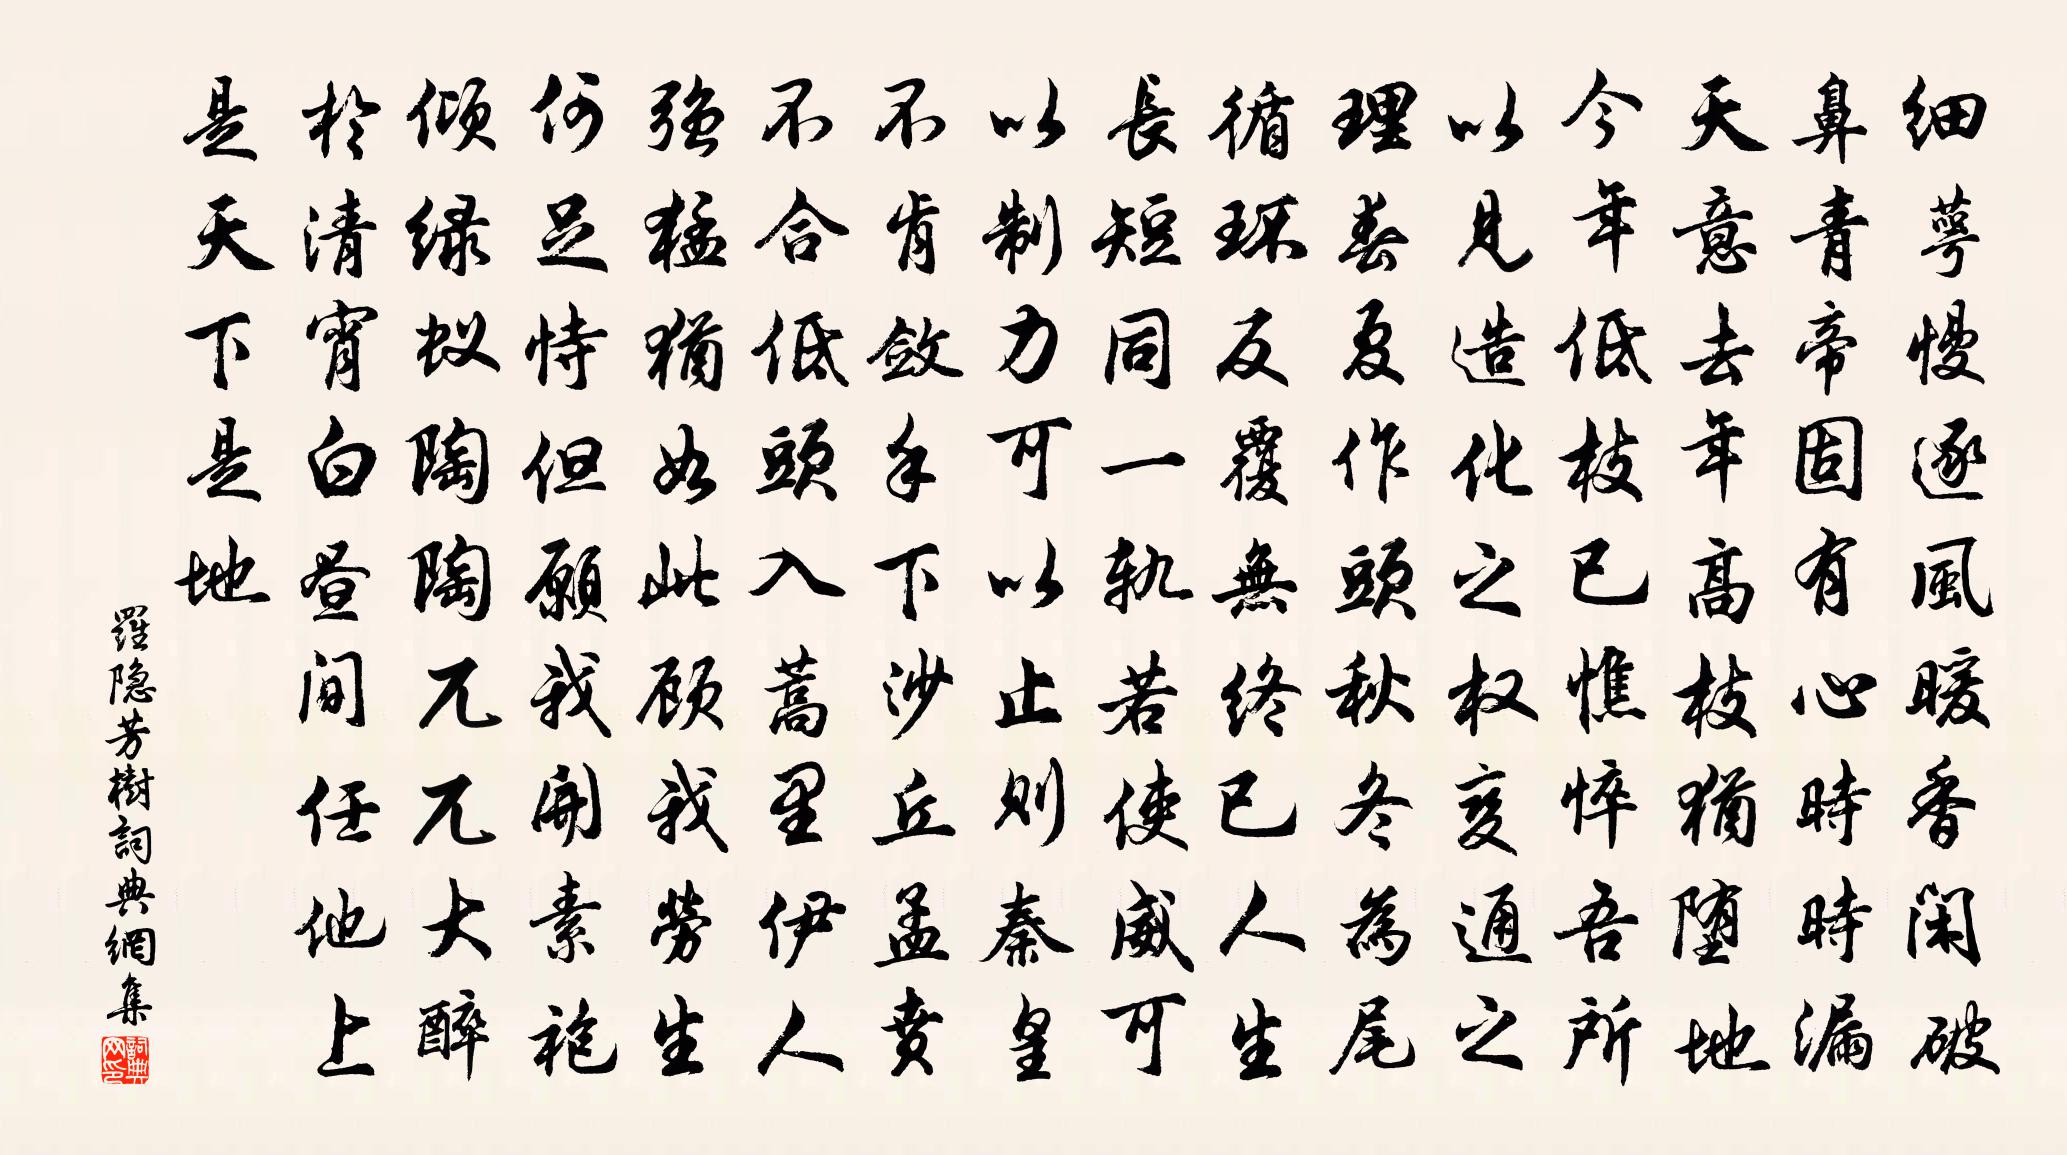 细萼慢逐風暖香闲破
鼻青帝固有心時時漏
天意去年高枝猶堕地
今年低枝已憔悴吾所
以見造化之权变通之
理春夏作頭秋冬為尾
循环反覆無终已人生
長短同一轨若使威可
以制力可以止则秦皇
不肯敛手下沙丘孟贲
不合低頭入蒿里伊人
强猛猶如此顾我勞生
何足恃但願我開素袍
倾绿蚁陶陶兀兀大醉
於清宵白昼间任他上
是天下是地
羅隐芳樹詞典網集
詞典网印